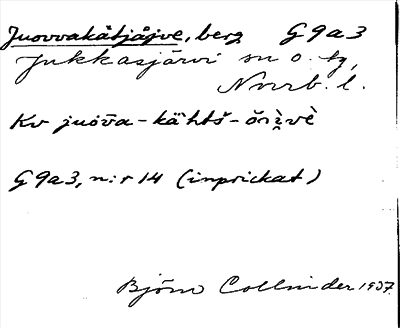 Juovvakåtjåjve, berg G9a3
Jukkasjärvi sn o. tg,
Nrrb. l.
Kv juōva-kähtš-ōi̭vè
G9a3, n:r 14 (inprickat)
Björn Collinder 1937.